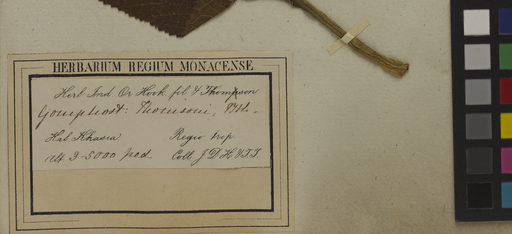 HERBARIUM REGIUM MONACENSE
Herb. Ind. Or. Hook. fil. & Thompson
Gomphost: Thomsoni, Bth.
Hab. Khasia Regio trop.
Alt. 3-5000 ped. Coll. J.D.H. & T.T.